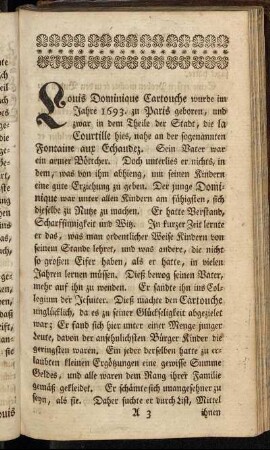 Louis Dominique Cartouche wurde im
Jahr 1693. zu Paris geboren, und
zwar in dem Theile der Stadt, die la
Courtille hies, nahe an der sogenannten
Fontaine aux Echaudez. Sein Vater war
ein armer Böttcher. Doch unterlies er nichts, in
dem, was von ihm abhieng, um seinen Kindern
eine gute Erziehung zu geben. Der junge Domi-
nique war unter allen Kindern am fähigsten, sich
dieselbe zu Nutze zu machen. Er hatte Verstand,
Scharfsinnigkeit und Witz. In kurzer Zeit lernte
er das, was man ordentlicher Weise Kindern von
seinem Stande lehret, und was andere, die nicht
so großen Eifer haben, als er hatte, in vielen
Jahren lernen müssen. Dieß bewog seinen Vater,
mehr auf ihn zu wenden. Er sandte ihn ins Col-
legium der Jesuiter. Dieß machte den Cartouche
unglücklich, da es zu seiner Glückseligkeit abgezielet
war; Er fand sich hier unter einer Menge junger
Leute, davon der ansehnlichsten Bürger Kinder die
geringsten waren. Ein jeder derselben hatte zu er-
laubten kleinen Ergötzungen eine gewisse Summe
Geldes, und alle waren dem Rang ihrer Familie
gemäß gekleidet. Er schämte sich unangesehner zu
seyn, als sie. Daher suchte er durch List, Mittel
A 3 ihnen